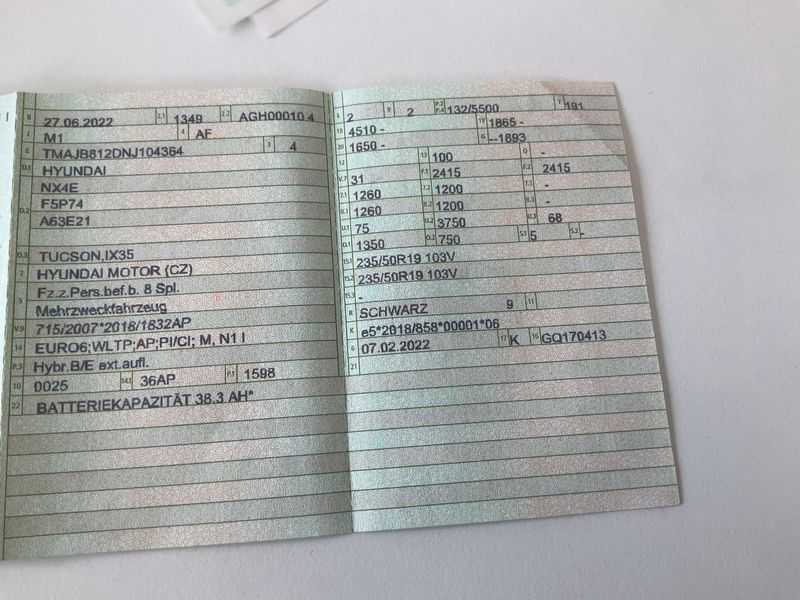 B 27.06.2022 2.1 1349 2.2 AGH00010 4
J M1 4 AF
E TMAJB812DNJ104364 3 4
D.1 HYUNDAI
NX4E
D.2 F5P74
A63E21
D.3 TUCSON,IX35
2 HYUNDAI MOTOR (CZ)
5 Fz.z.Pers.bef.b. 8 Spl.
Mehrzweckfahrzeug
V.9 715/2007*2018/1832AP
14 EURO6;WLTP;AP;PI/CI; M, N1 I
P.3 Hybr.B/E ext.aufl.
10 0025 14.1 36AP P.1 1598
22 BATTERIEKAPAZITÄT 38.3 AH*
L 2 9 2 P.2 P.4 132/5500 T 191
18 4510 - 19 1865 -
20 1650 - G --1893
12 13 100 Q -
V.7 31 F.1 2415 F.2 2415
7.1 1260 7.2 1200 7.3 -
8.1 1260 8.2 1200 8.3 -
U.1 75 U.2 3750 U.3 68
O.1 1350 O.2 750 S.1 5 S.2 -
15.1 235/50R19 103V
15.2 235/50R19 103V
15.3 -
R SCHWARZ 9 11
K e5*2018/858*00001*06
6 07.02.2022 17 K 16 GQ170413
21